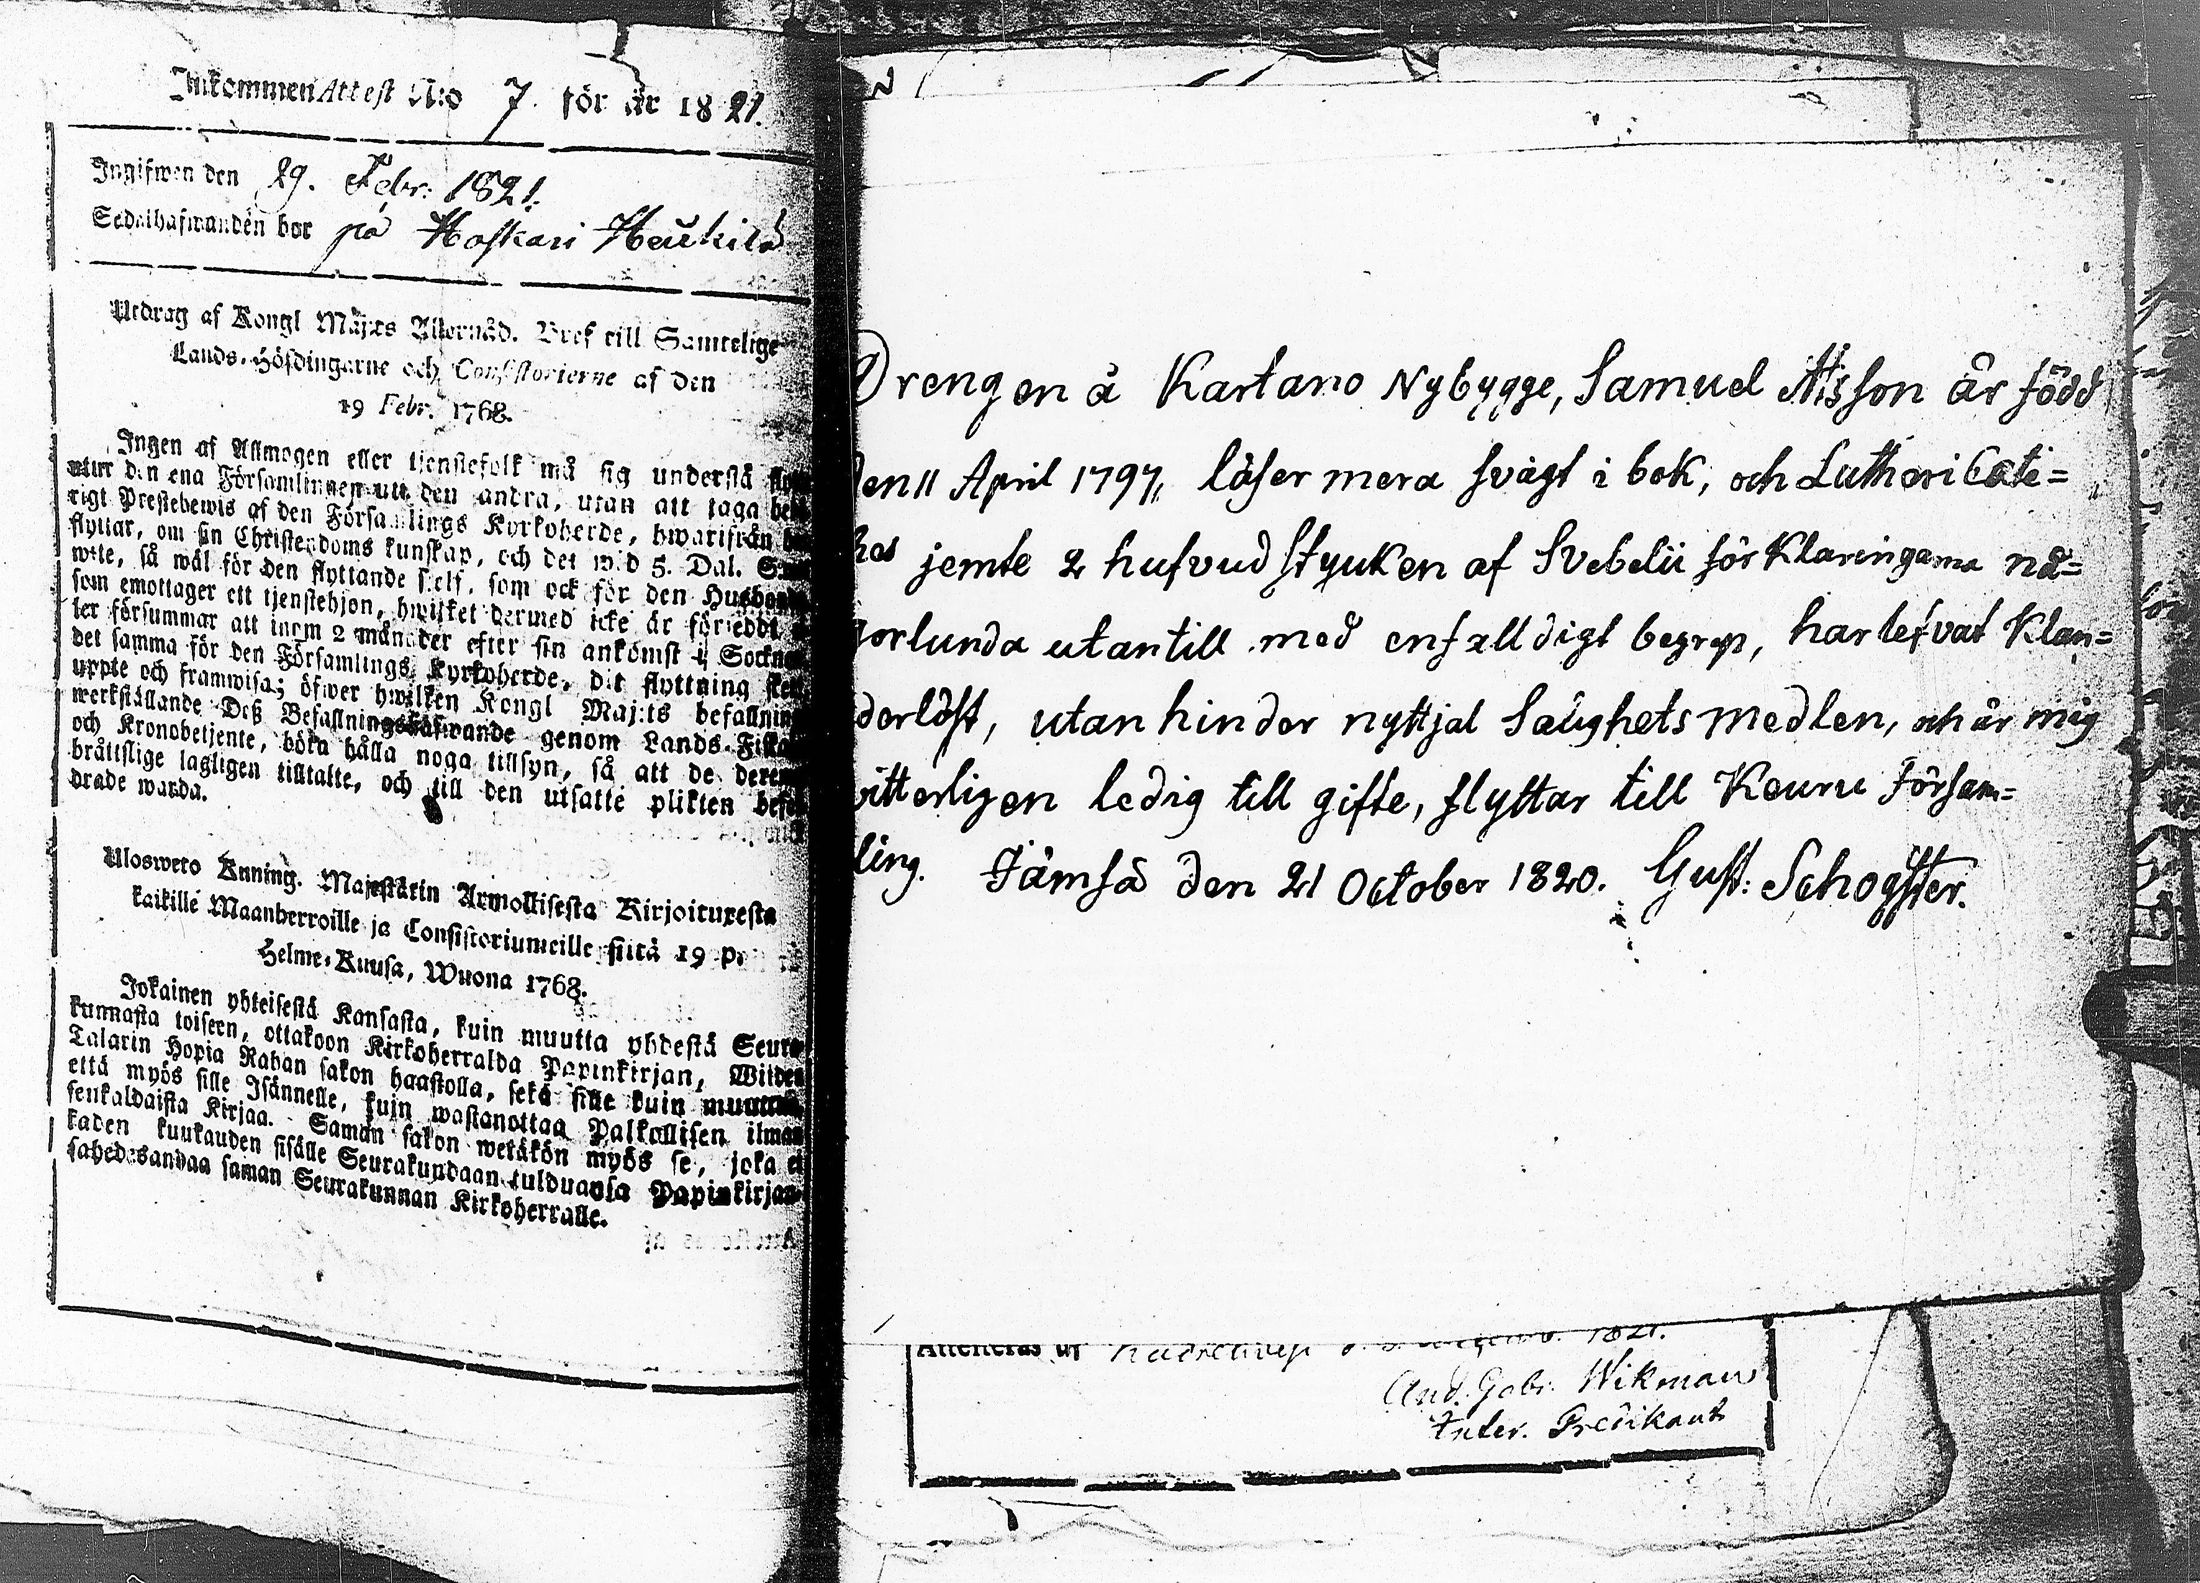 Inkommen Attest N:o 7. för år 1821.
Ingifwen den 29. Febr: 1821.
Sedelhafwanden bor på Hoskari Heikilä
Utdrag af Kongl Maj:ts Allernåd. Bref till Samtelige
Lands-Höfdingarne och Consistorierne af den
19 Febr. 1768.
Ingen af Allmogen eller tjenstefolk må sig understå
utur den ena Församlingen uti den andra, utan att taga
rigt Prestebewis af den Församlings Kyrkoherde, hwarifrån
flyttar, om sin Christendoms kunskap, och det wid 5. Dal.
wite, så wäl för den flyttande sielf, som ock för den
som emottager ett tjenstehjon, hwilket dermed icke är försedt,
ler försummar att inom 2 månader efter sin ankomst i
det samma för den Församlings Kyrkoherde, dit flyttning
uppte och framwisa; öfwer hwilken Kongl Maj:ts
werkställande Deß Befallningshafwande genom Lands-
och Kronobetjente, böra hålla noga tillsyn, så att de
bråttslige lagligen tilltalte, och till den utsatte plikten
drade warda.
Ulosweto Kuning. Majestätin Armollisesta Kirjoituxesta
kaikille Maanherroille ja Consistoriumeille siitä 19 p.
Helme-Kuusa, Wuona 1768.
Jokainen yhteisestä Kansasta, kuin muutta yhdestä Seura-
kunnasta toiseen, ottakoon Kirkoherralda Papinkirjan, Wiiden
Talarin Hopia Rahan sakon haastolla, sekä sille kuin
että myös sille Isännelle, kuin wastanottaa Palkollisen ilman
senkaldaista Kirjaa. Saman sakon wetäkön myös se, joka ei
kaden kuukauden sisälle Seurakundaan tulduansa Papinkirjan-
sahedesandaa saman Seurakunnan Kirkoherralle.
Drengen å Kartano Nybygge, Samuel Nisson är född
den 11 April 1797, läser mera svagt i bok, och Lutheri Cate=
hes jemte 2 hufvud styuken af Svebelii förklaringarna nå=
gorlunda utantill med enfalldigt begrep, har lefvat klan=
derlöst, utan hinder nyttjat Salighets medlen, och är mig
vitterligen ledig till gifte, flyttar till Keuru Försam=
ling. Jämsä den 21 October 1820. Gust: Schogster.
Attesteras af 1821.
And. Gabr. Wikman
Inter. Predikant